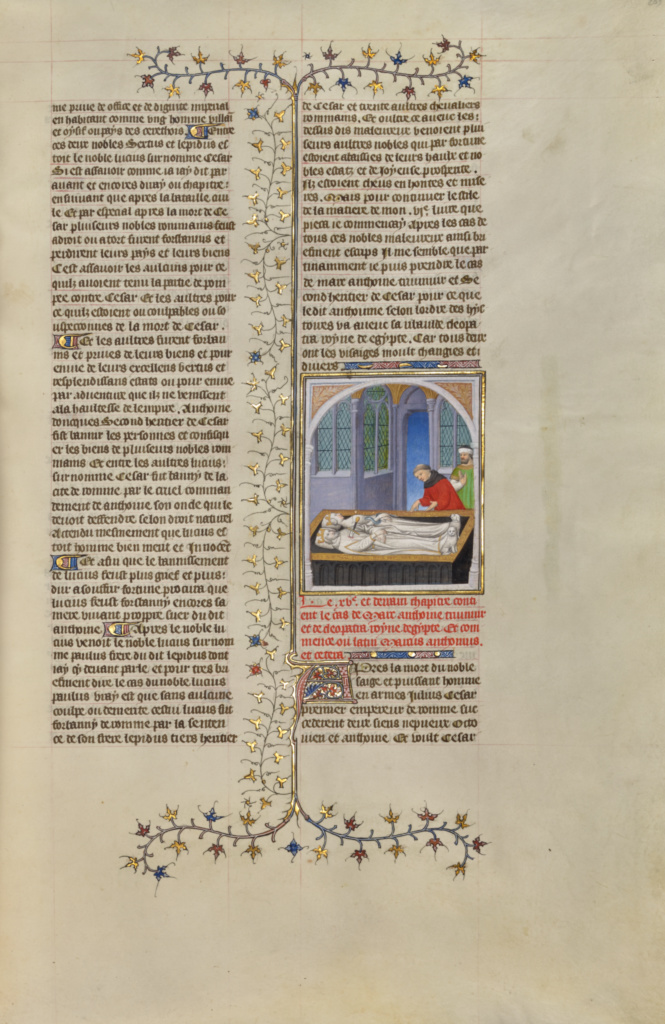 me priue de office et de dignite imperial
en habitant comme vng homme villain
et oysif ou pays des cerethois. Entre
ces deux nobles Sextus et lepidus es
toit le noble lucius surnomme Cesar
Si est assauoir comme ia iay dit par
auant et encores diray ou chapitre
ensuiuant que apres la bataille ciui
le Et par especial apres la mort de Ce
sar pluseurs nobles rommains feust
adroit ou a tort furent forbannis et
perdirent leurs pays et leurs biens
Cest assauoir les aulcuns pour ce
quilz auoient tenu la partie de pom
pee contre Cesar Et les aultres pour
ce quilz estoient ou coulpables ou so
uspeconnes de la mort de Cesar.
Et les aultres furent forban
nis et priues de leurs biens et pour
enuie de leurs excellens vertus et
resplendissans estats ou pour enuie
par aduenture que ilz ne venissent
a la haultesse de lempire. Anthoine
doncques Second heritier de Cesar
fist bannir les personnes et confisqu
er les biens de pluseurs nobles rom
mains Et entre les aultres lucius
surnomme Cesar fut banny de la
cite de romme par le cruel comman
dement de anthoine son oncle qui le
deuoit deffendre selon droit naturel
Actendu mesmement que lucius es
toit homme bien merit et Innocent
Et afin que le bannissement
de lucius feust plus grief et plus
dur a souffrir fortune procura que
lucius feust forbanny encores sa
mere viuant propre suer du dit
anthoine. Apres le noble lu
cius venoit le noble lucius surnom
me paulus frere du dit lepidus dont
iay cy deuant parle et pour tres bri
efment dire le cas du noble lucius
paulus vray est que sans aulcune
coulpe ou demerite cestui lucius fut
forbanny de romme par la senten
ce de son frere lepidus tiers heritier
de Cesar et trente aultres cheualiers
rommains. Et oultre ce auec les
dessus dis maleureux venoient plu
seurs aultres nobles qui par fortune
estoient abaisses de leurs haulx et no
bles estatz et de Joyeuse prosperite.
Ilz estoient cheus en hontes et mise
res. Mais pour continuer le stile
de la matiere de mon .vie. liure que
pieca ie commencay apres les cas de
tous ces nobles maleureux ainsi bri
efment escrips Il me semble que par
tinamment ie puis prendre le cas
de marc anthoine triumuir et Se
cond heritier de Cesar pour ce que
le dit anthoine selon lordre des hys
toires va auec sa ribaulde cleopa
tra royne de egypte. Car tous deux
ont les visaiges moult changies et
diuers
Le xve. et derrain chapitre conti
ent le cas de Marc anthoine triumuir
et de cleopatra royne degypte. Et com
mence ou latin Marcus anthonius.
et cetera
Apres la mort du noble
saige et puissant homme
en armes Julius Cesar
premier empereur de romme suc
cederent deux siens nepueux Octo
uien et anthoine Et voult Cesar